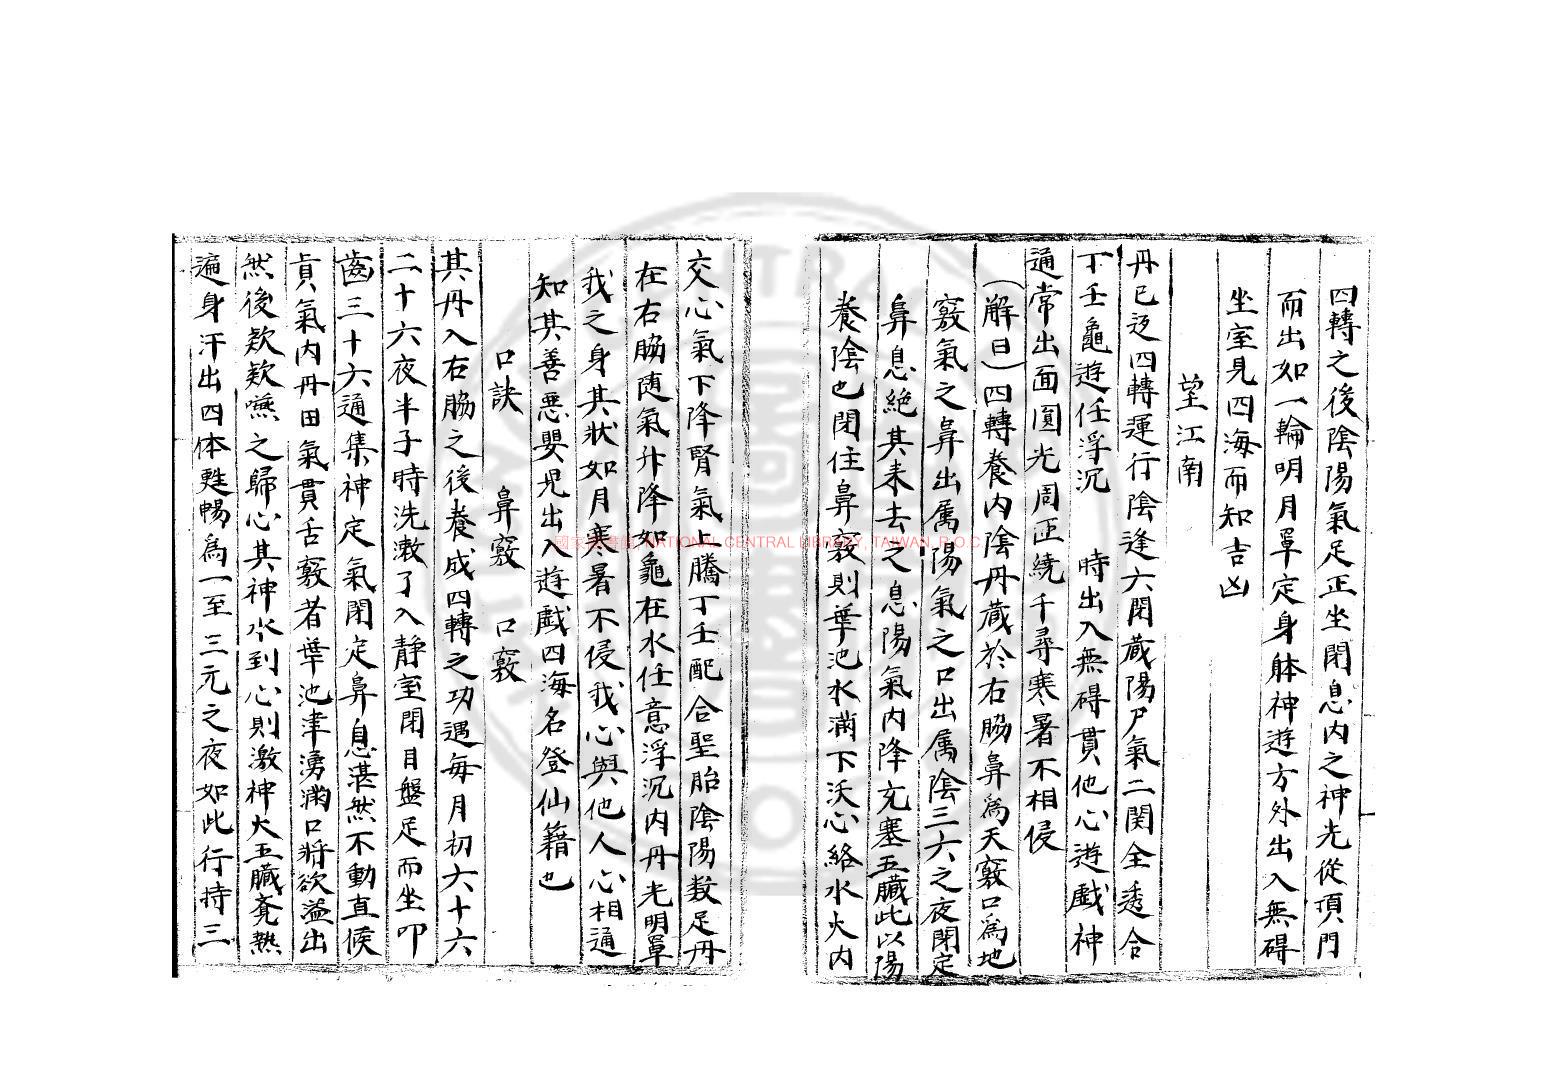 四轉之後陰陽氣足正坐閉息內之神光從頂門
而出如一輪明月罩定身躰神遊方外出入無碍
坐室見四海而知吉凶
望江南
丹已迓四轉運行陰逢六閉蔵陽尸氣二関全透合
丁壬龜遊任浮沉　時出入無碍貫他心遊戯神
通常出面圓光周匝繞千尋寒暑不相侵
（解曰）四轉養內陰丹蔵於右脇鼻為天竅口為地
竅氣之鼻出属陽氣之口出属陰三六之夜閉定
鼻息絶其来去之息陽氣內降充塞五臓此以陽
養陰也閉住鼻竅則華池水滿下沃心絡水火內
交心氣下降腎氣上騰丁壬配合聖胎陰陽数足丹
在右脇随氣升降如龜在水任意浮沉內丹光明罩
我之身其狀如月寒暑不侵我心與他人心相通
知其善悪嬰児出入遊戯四海名登仙籍也
口訣　鼻竅　口竅
其丹入右脇之後養成四轉之功遇每月初六十六
二十六夜半子時洗漱了入静室閉目盤足而坐叩
齒三十六通集神定氣閉定鼻息湛然不動直候
真氣內丹田氣貫舌竅者華池津湧滿口將欲溢出
然後欻欻嚥之歸心其神水到心則激神火五臓竟熱
遍身汗出四体甦暢為一至三元之夜如此行持三
國家圖書館, NATIONAL CENTRAL LIBRARY, TAIWAN, R.O.C